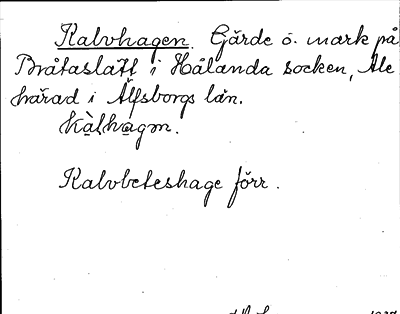 Kalvhagen. Gärde o. mark på
Bråtaslätt i Hålanda socken, Ale
härad i Älfsborgs län.
kàlhagən.
Kalvbeteshage förr.